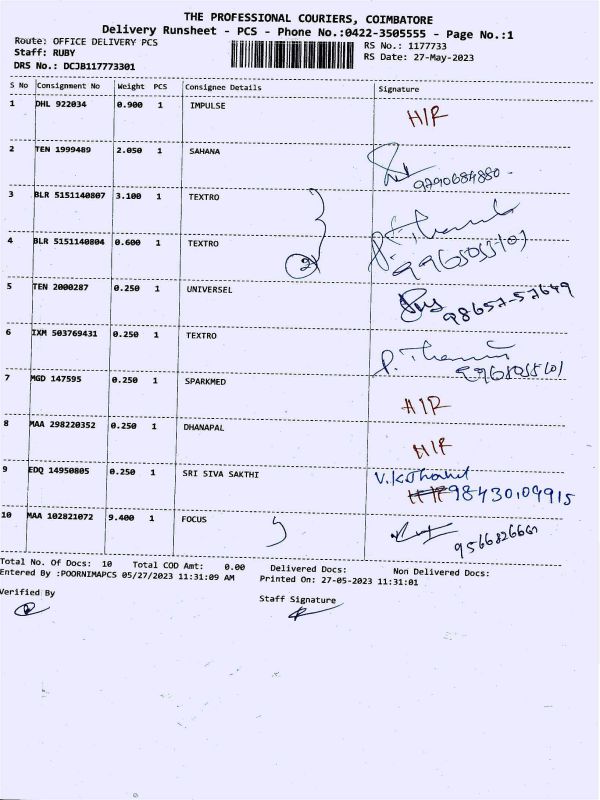 THE PROFESSIONAL COURIERS, COIMBATORE
Delivery Runsheet - PCS - Phone No.:0422-3505555 - Page No.:1
Route: OFFICE DELIVERY PCS
RS No.: 1177733
Staff: RUBY
RS Date: 27-May-2023
DRS No.: DCJB117773301
S No Consignment No Weight PCS Consignee Details Signature
1 DHL 922034 0.900 1 IMPULSE H/R
2 TEN 1999489 2.050 1 SAHANA
3 BLR 5151140807 3.100 1 TEXTRO
4 BLR 5151140804 0.600 1 TEXTRO
2
5 TEN 2000287 0.250 1 UNIVERSEL 98657-57649
6 IXM 503769431 0.250 1 TEXTRO
7 MGD 147595 0.250 1 SPARKMED H/R
8 MAA 298220352 0.250 1 DHANAPAL H/R
9 EDQ 14950805 0.250 1 SRI SIVA SAKTHI
10 MAA 102821072 9.400 1 FOCUS
Total No. Of Docs: 10 Total COD Amt: 0.00 Delivered Docs: Non Delivered Docs:
Entered By :POORNIMAPCS 05/27/2023 11:31:09 AM Printed On: 27-05-2023 11:31:01
Verified By
Staff Signature